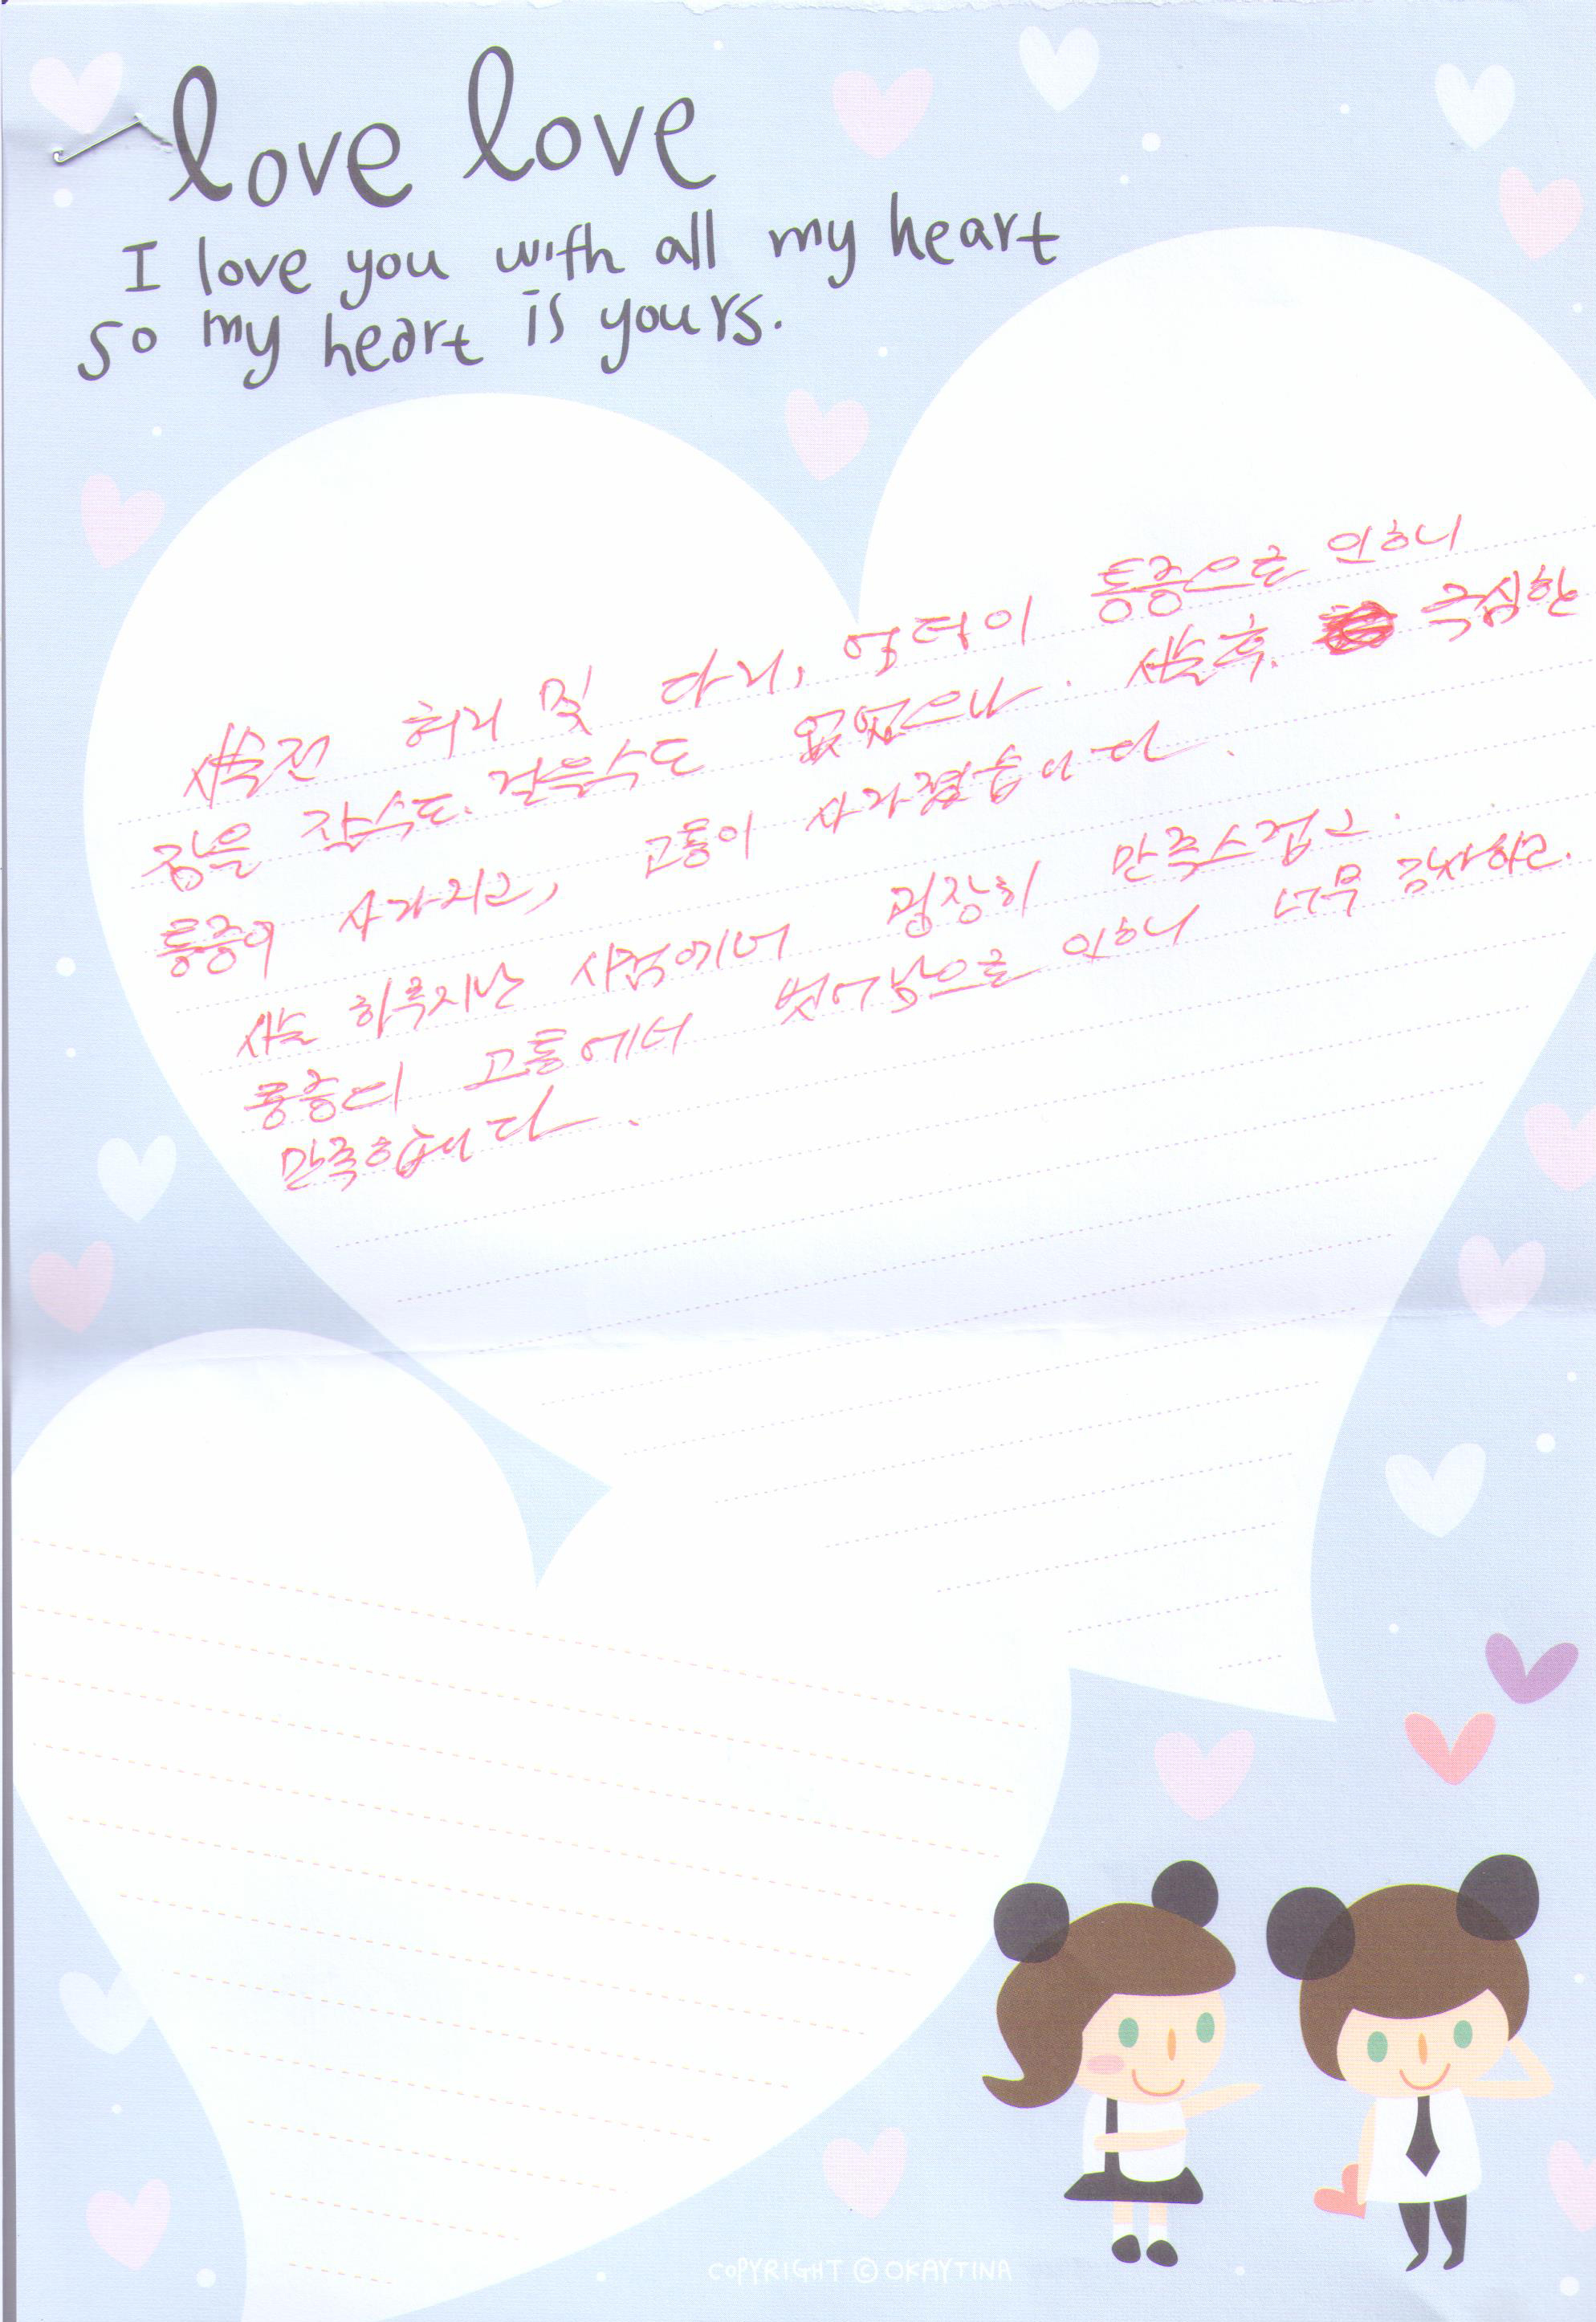 love love
I love you with all my heart
so my heart is yours.
시술전 허리 및 다리, 엉덩이 통증으로 인하니
잠을 잘수도. 걸을수도 없었으나. 시술후. 극심한
통증이 사라지고, 고통이 사라졌습니다.
시술 하루지난 시점에서 굉장히 만족스럽고.
통증의 고통에서 벗어남으로 인하니 너무 감사하고.
만족합니다.
COPYRIGHT © OKAYTINA